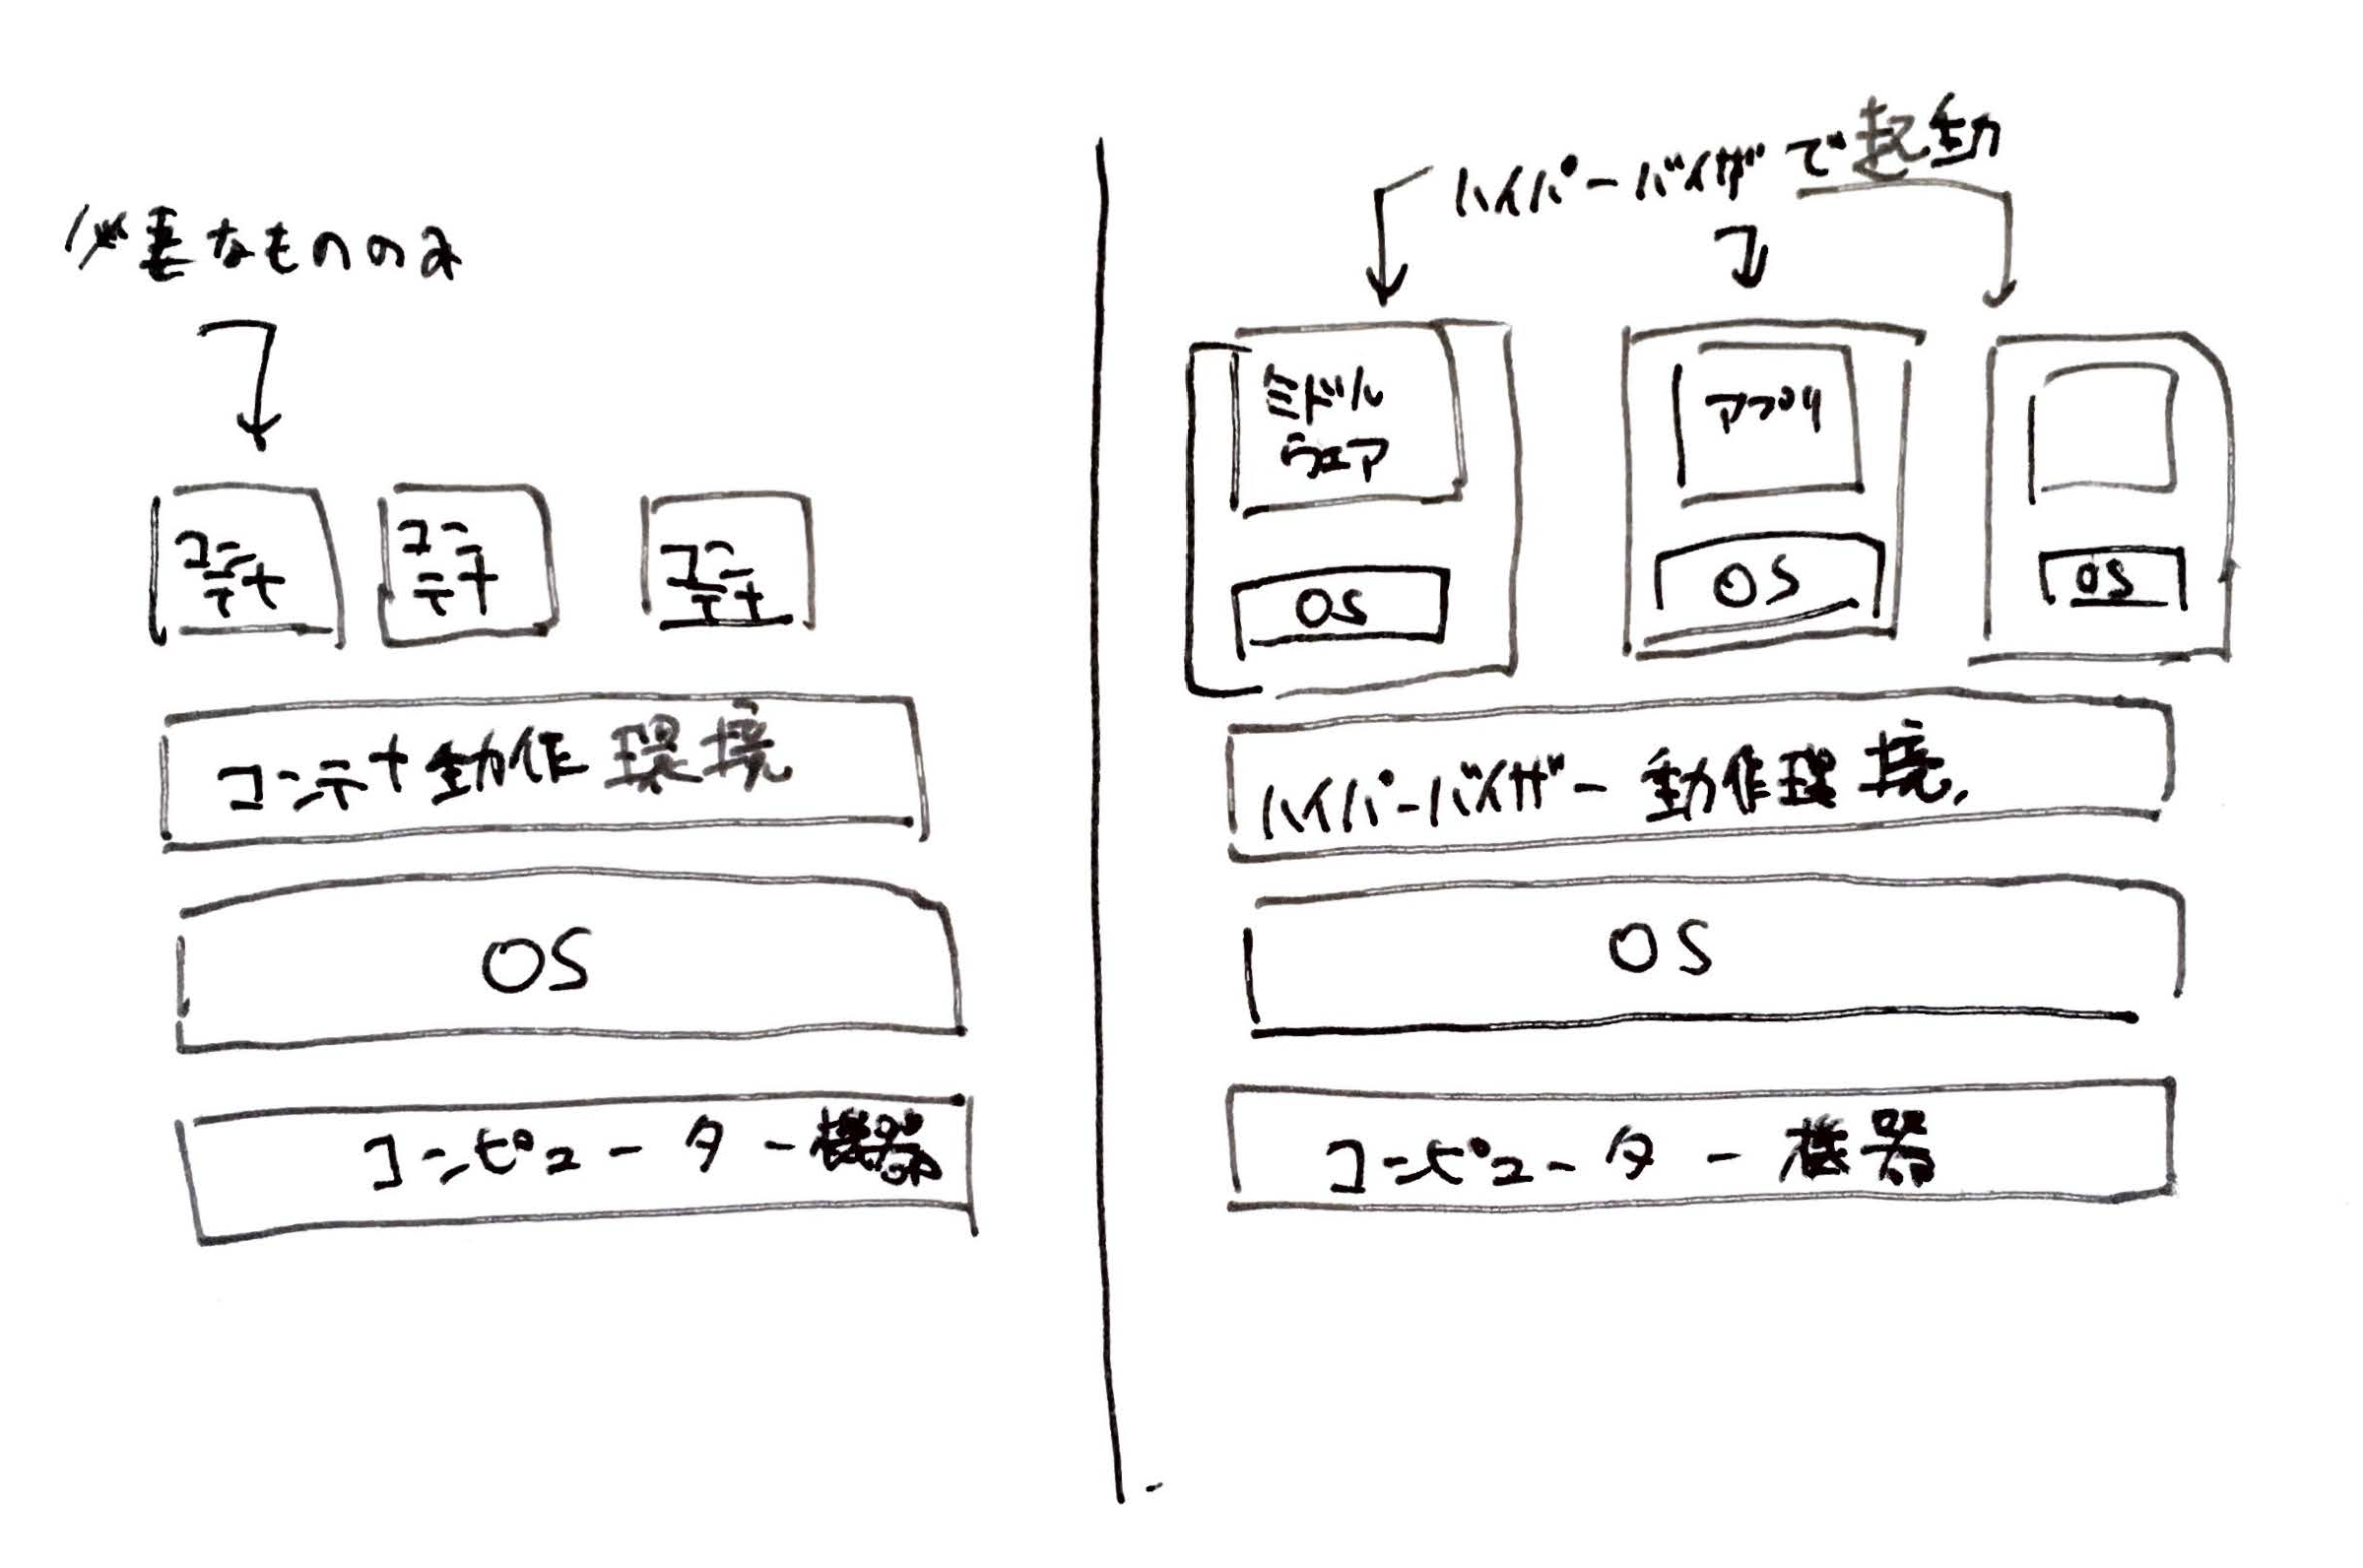 必要なもののみ
コン
テナ
コン
テナ
コン
テナ
コンテナ動作環境
OS
コンピューター機器
ハイパーバイザで起動
ミドル
ウェア
OS
アプリ
OS
OS
ハイパーバイザー動作環境
OS
コンピューター機器